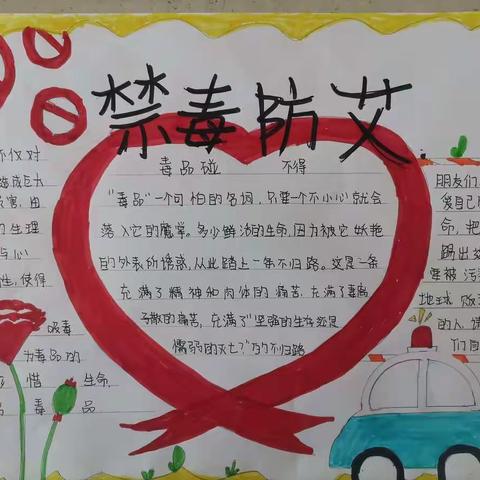 禁毒防艾
毒品碰 不得
"毒品"一个可怕的名词,只要一个不小心就会
落入它的魔掌。多少鲜活的生命,因为被它妖艳
的外表所诱惑,从此踏上一条不归路。这是一条
充满了精神和肉体的痛苦,充满了妻离
子散的痛苦,充满了"坚强的生存还是
懦弱的死亡?"的不归路
不仅对
造成巨大
害,由
的生理
与心
性,使得
吸毒
为毒品的
惜 生命,
毒 品
朋友们
爱自己
命,把
踢出
要被 污
地球 毁
的人 请
们 自